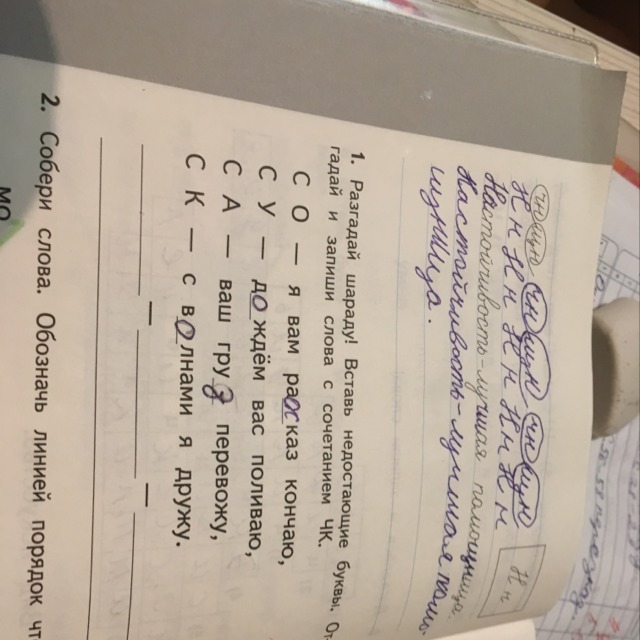 чн щн чн щн чн щн
Н н Н н Н н Н н Н н
Настойчивость-лучшая помощница.
Настойчивость-лучшая помо-
щница.
Н н
1. Разгадай шараду! Вставь недостающие буквы. От-
гадай и запиши слова с сочетанием ЧК.
С О — я вам рассказ кончаю,
С У — дождём вас поливаю,
С А — ваш груз перевожу,
С К — с волнами я дружу.
2. Собери слова. Обозначь линией порядок чт
мо